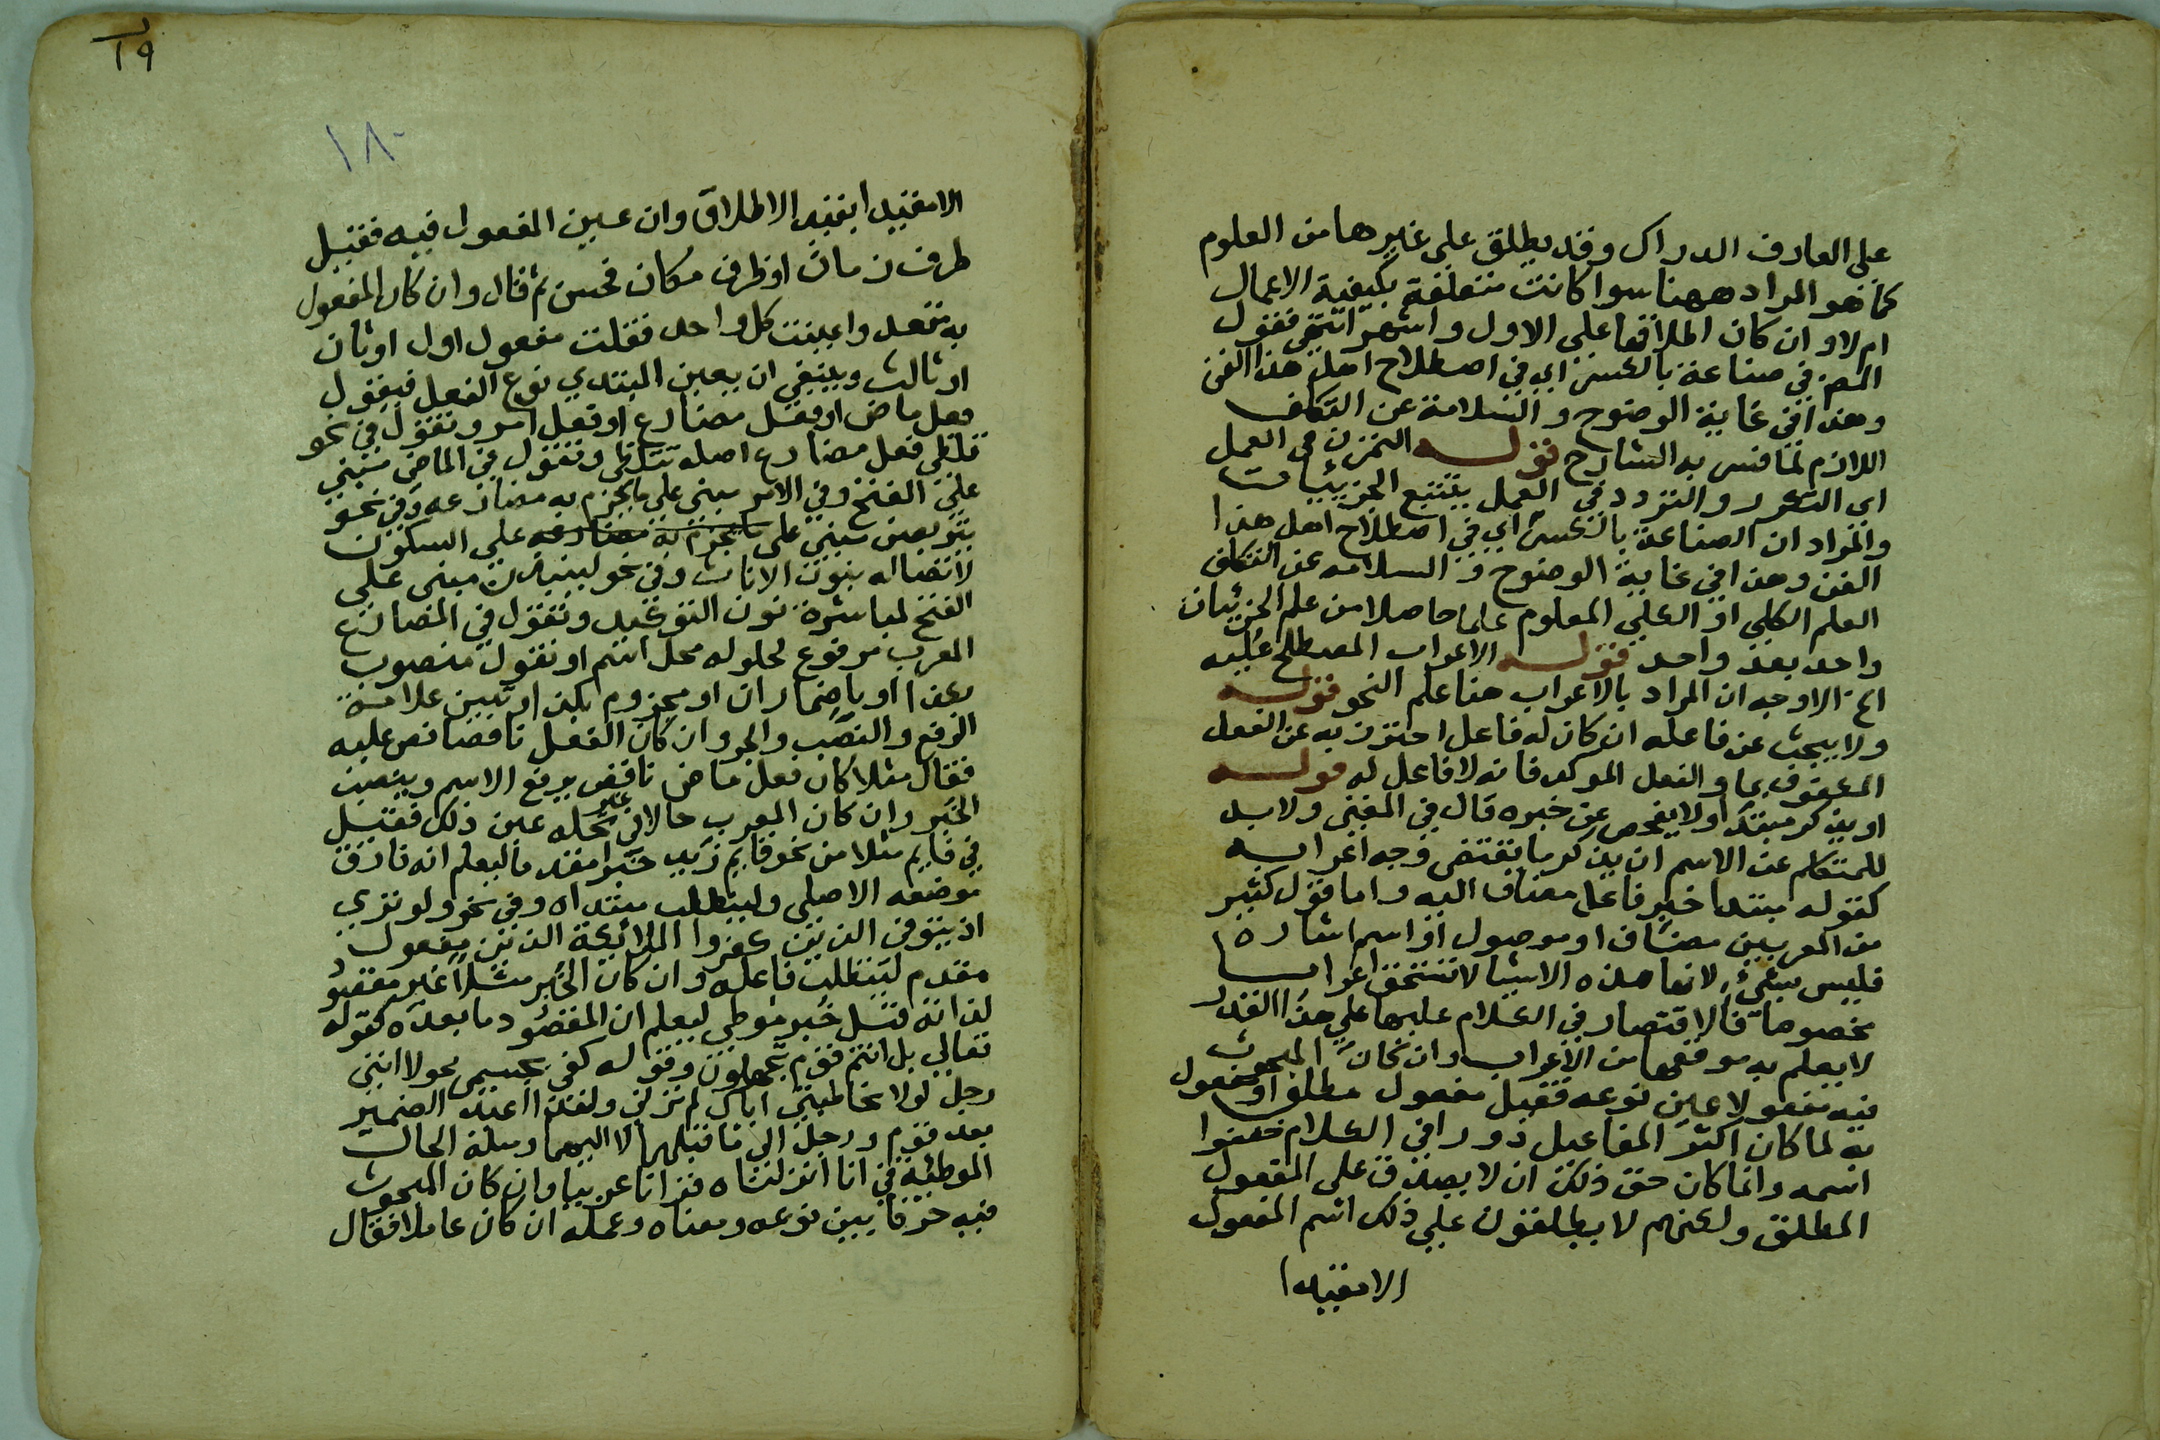 على العارف الدراك وقد يطلق على غيرها من العلوم
كما هو المراد ههنا سوا كانت متعلقة بكيفية الاعمال
ام لا وان كان اطلاقها على الاول واشهر انتهى فقول
المص في صناعة بالعسن اي في اصطلاح اهل هذا الفن
وهذا في غاية الوضوح والسلامة عن التكلف
اللازم لما فسر به الشارح قوله التمرن في العمل
اي التكرر والتردد في العمل بتتبع الجزئيات
والمراد ان الصناعة بالعسن اي في اصطلاح اهل هذا
الفن وهذا في غاية الوضوح والسلامه عن التكلف
العلم الكلي او العلي المعلوم علما حاصلا من علم الجزئيات
واحد بعد واحد قوله الاعراب المصطلح عليه
الخ الاوجه ان المراد بالاعراب هنا علم النحو قوله
ولا يبحث عن فاعله ان كان له فاعل احترز به عن الفعل
المكفوف بما والفعل الموكد فانه لا فاعل له قوله
او يذكر مبتدا ولا يفحص عن خبره قال في المغني ولا بد
للمتكلم عن الاسم ان يذكر ما يقتضي وجه اعرابه
كقوله مبتدا خبر فاعل مضاف اليه واما قول كثير
من المعربين مضاف او موصول او اسم اشارة
فليس بشيء لانها هذه الاشيا لا تستحق اعرابا
مخصوصا فالاقتصار في الكلام عليها على هذا القدر
لا يعلم به موقعها من الاعراب وان كان المبحوث
فيه مفعولا عين نوعه فقيل مفعول مطلق او مفعول
به لما كان اكثر المفاعيل دورا في الكلام خففوا
اسمه وانما كان حق ذلك ان لا يصدق على المفعول
المطلق ولكنهم لا يطلقون على ذلك اسم المفعول
الا مقيدا
١٩
١٨٠
الا مقيدا بقيد الاطلاق وان عين المفعول فيه فقيل
ظرف زمان او ظرف مكان فحسن ثم قال وان كان المفعول
به متعدد واعينت كل واحد فقلت مفعول اول او ثان
او ثالث وينبغي ان يعين المبتدي نوع الفعل فيقول
فعل ماض او فعل مضارع او فعل امر وتقول في نحو
تلظى فعل مضارع اصله تتلظى وتقول في الماضي مبني
على الفتح وفي الامر مبني على ما يجزم به مضارعه وفي نحو
يتربصن مبني على ما يجزم به مضارعه على السكون
لاتصاله بنون الاناث وفي نحو لينبذن مبني على
الفتح لمباشرة نون التوكيد وتقول في المضارع
المعرب مرفوع لحلوله محل اسم او تقول منصوب
بكذا او باضمار ان او مجزوم بكذا وتبين علامة
الرفع والنصب والجر وان كان الفعل ناقصا نص عليه
فقال مثلا كان فعل ماض ناقص يرفع الاسم وينصب
الخبر وان كان المعرب حالا في غير محله عين ذلك فقيل
في قايم مثلا من نحو قايم زيد خبر مقدم ليعلم انه فارق
موضعه الاصلي وليتطلب مبتداه وفي نحو ولو ترى
اذ يتوفى الذين كفروا الملائكة الذين مفعول
مقدم ليتطلب فاعله وان كان الخبر مثلا غير مقصود
لذاته قيل خبر موطي ليعلم ان المقصود ما بعده كقوله
تعالى بل انتم قوم تجهلون وقوله كفى بجسمي نحولا انني
رجل لولا مخاطبتي اياك لم ترني ولهذا اعيد الضمير
بعد قوم ورجل الى ما قبلهما لا اليهما ومثله الحال
الموطئة في انا انزلناه قرانا عربيا وان كان المبحوث
فيه حرفا بين نوعه ومعناه وعمله ان كان عاملا فقال